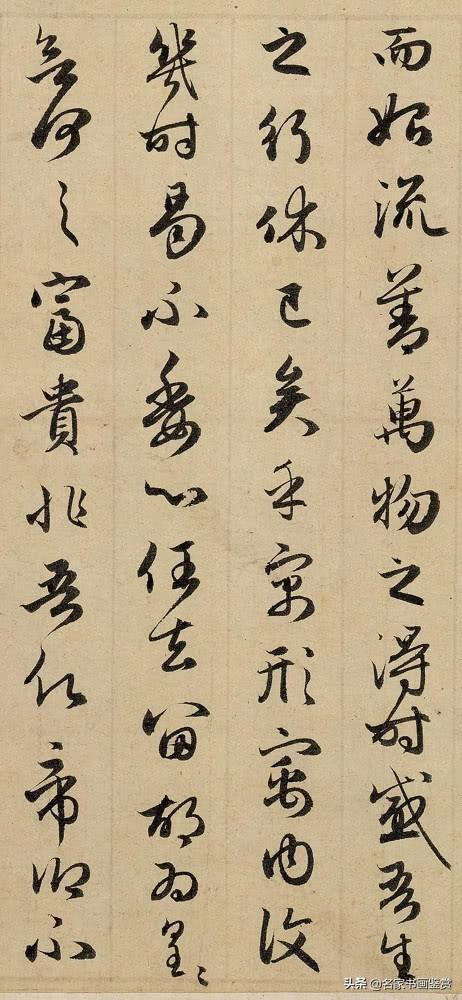 而始流善萬物之得時感吾生
之行休已矣乎寓形寓內復
幾時曷不委心任去留胡為皇〻
兮何之富貴非吾願帝鄉不
頭条 @名家书画鉴赏